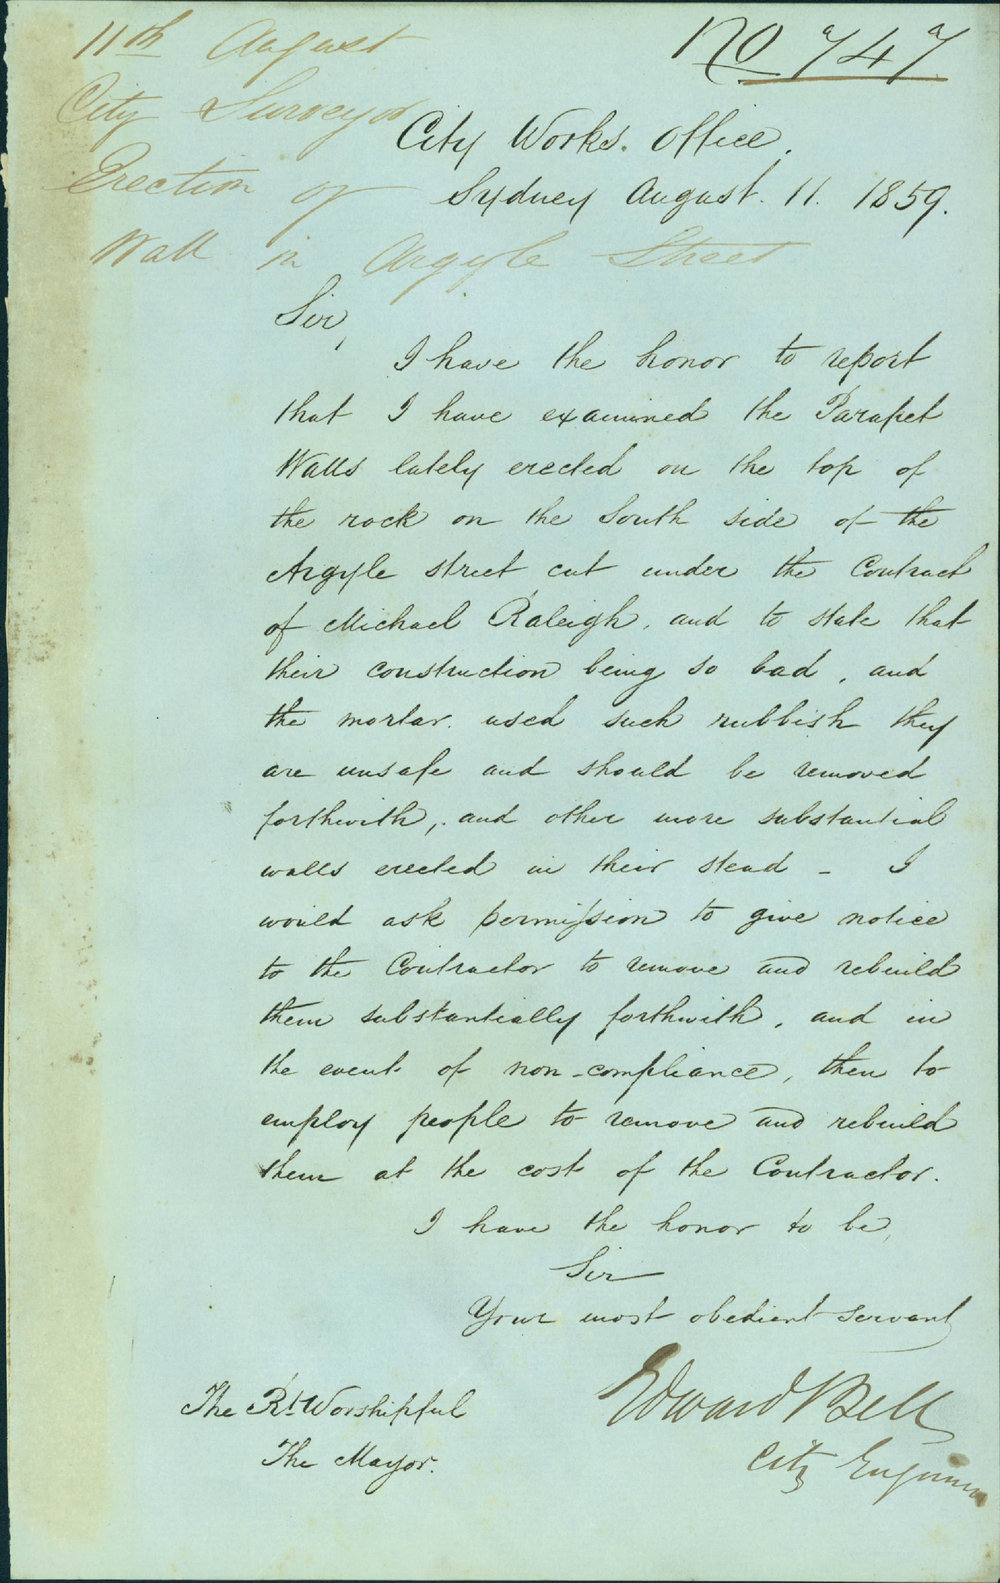 11th August
No 747
City Surveyor
City Works. Office.
Erection of
Sydney August. 11. 1859.
Wall in Argyle Street
Sir,
I have the honor to report
that I have examined the Parapet
Walls lately erected on the top of
the rock on the South side of the
Argyle street cut under the Contract
of Michael Raleigh, and to state that
their construction being so bad, and
the mortar used such rubbish they
are unsafe and should be removed
forthwith, and other more substantial
walls erected in their stead - I
would ask permission to give notice
to the Contractor to remove and rebuild
them substantially forthwith, and in
the event of non-compliance, then to
employ people to remove and rebuild
them at the cost of the Contractor.
I have the honor to be,
Sir
Your most obedient servant
Edward Bell
City Engineer
The Rt. Worshipful
The Mayor.